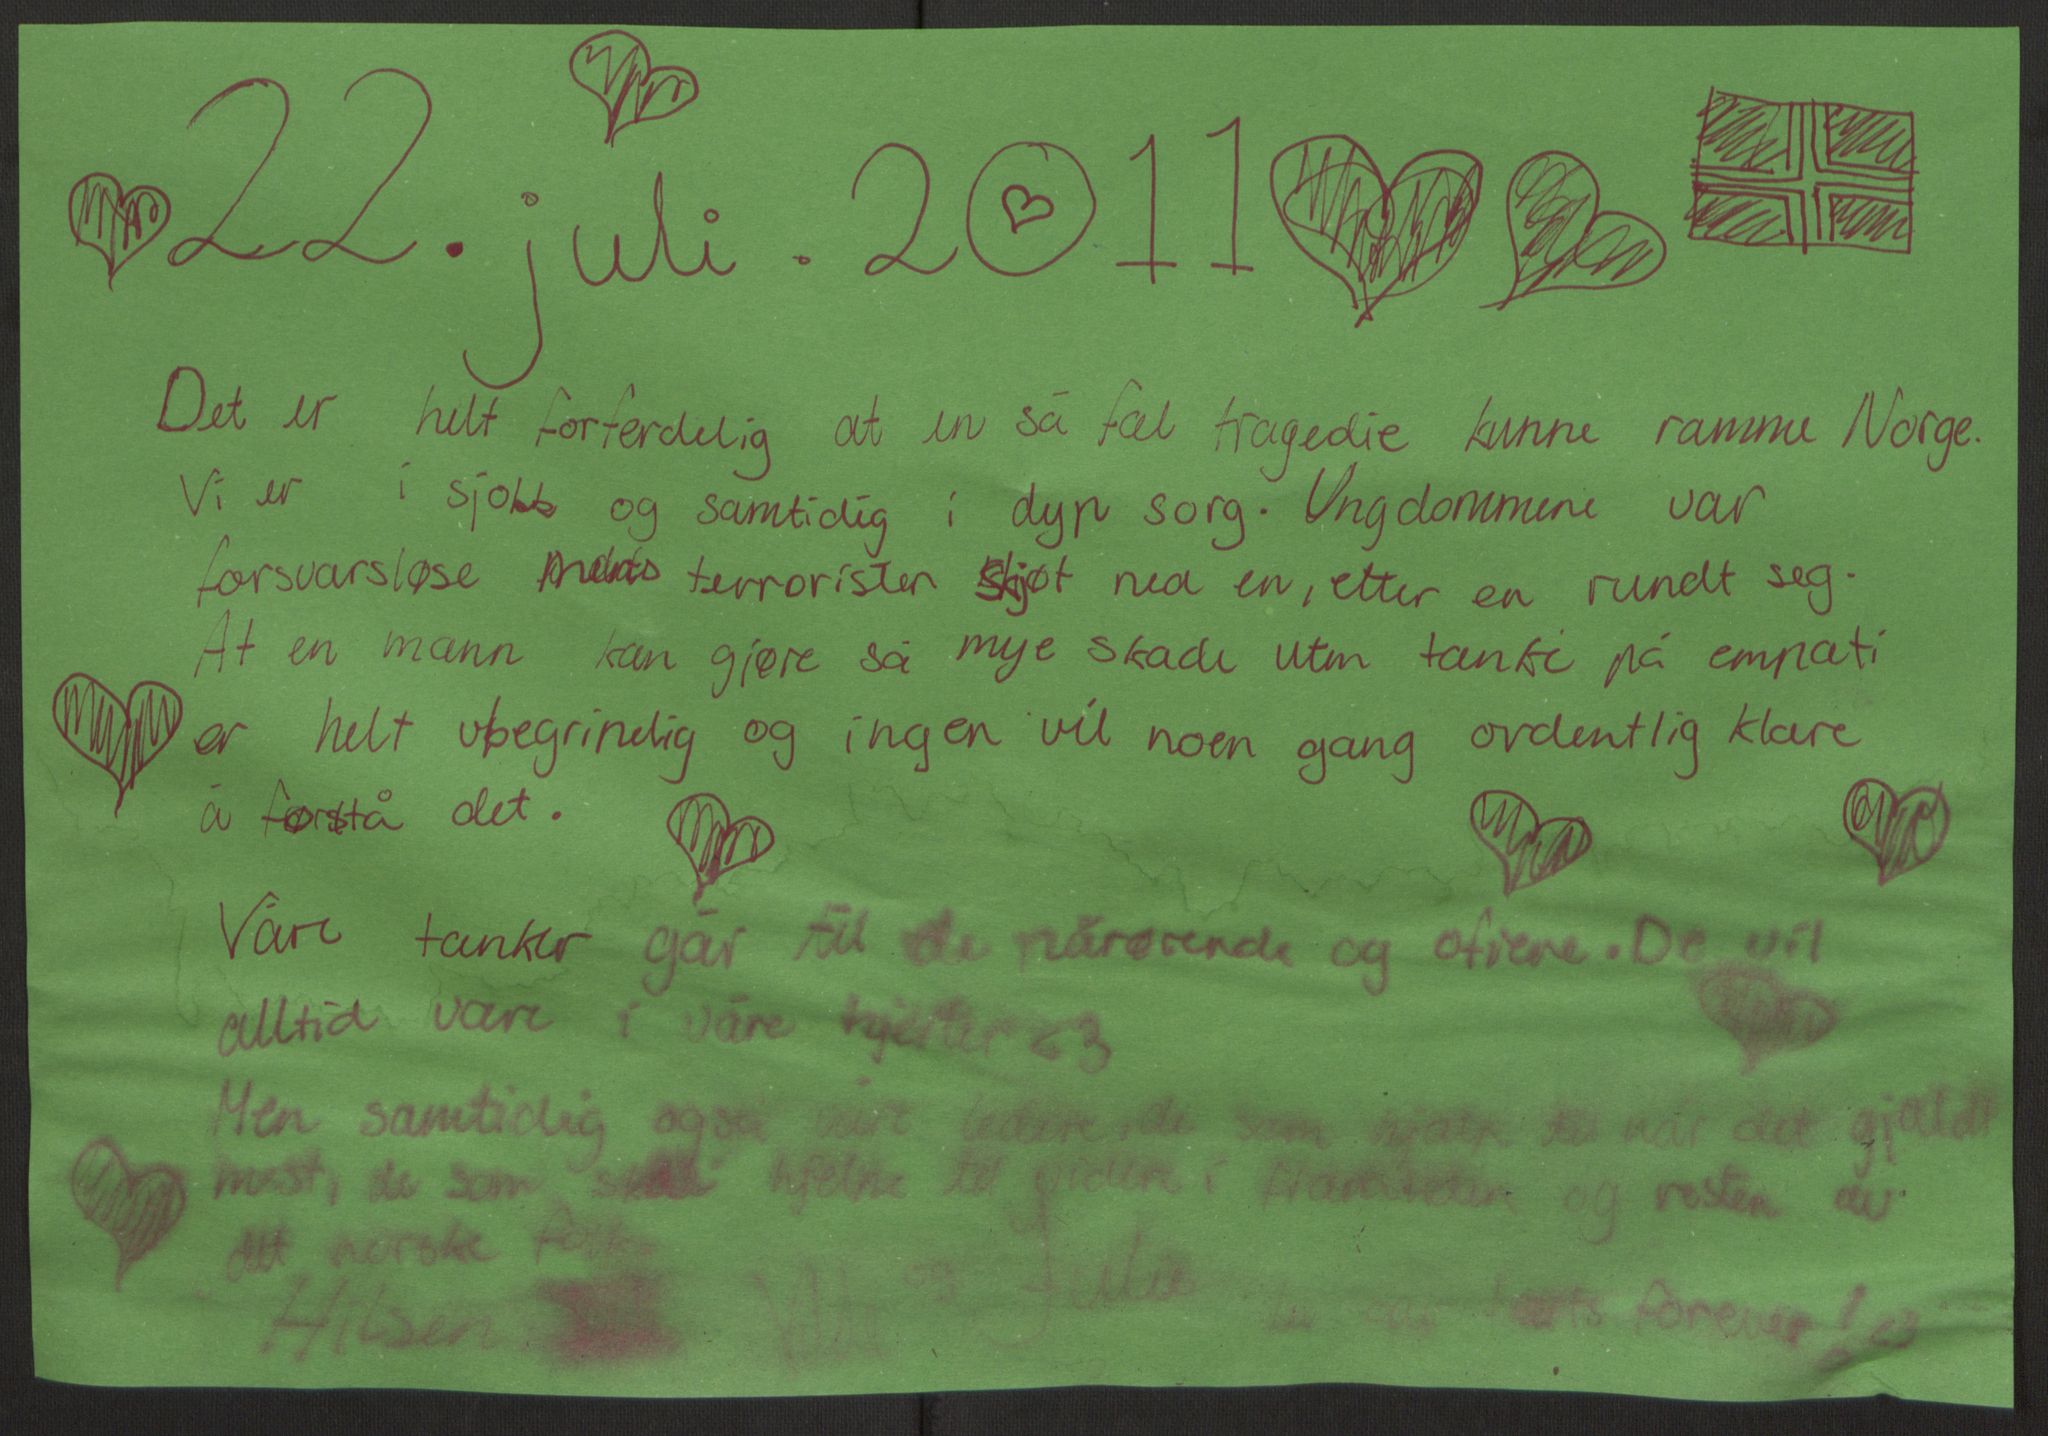 22. juli. 2011
Det er helt forferdelig at en så fæl tragedie kunne ramme Norge.
Vi er i sjokk og samtidig i dyp sorg. Ungdommene var
forsvarsløse mens terroristen skjøt ned en, etter en rundt seg.
At en mann kan gjøre så mye skade uten tanke på empati
er helt ubegripelig og ingen vil noen gang ordentlig klare
å forstå det.
Våre tanker går til de pårørende og ofrene. De vil
alltid være i våre hjerter <3
Men samtidig også våre ledere, de som hjalp til når det gjaldt
mest, de som skal hjelpe til videre i framtiden og resten av
det norske folk.
Hilsen og Julie
in our hearts forever! <3